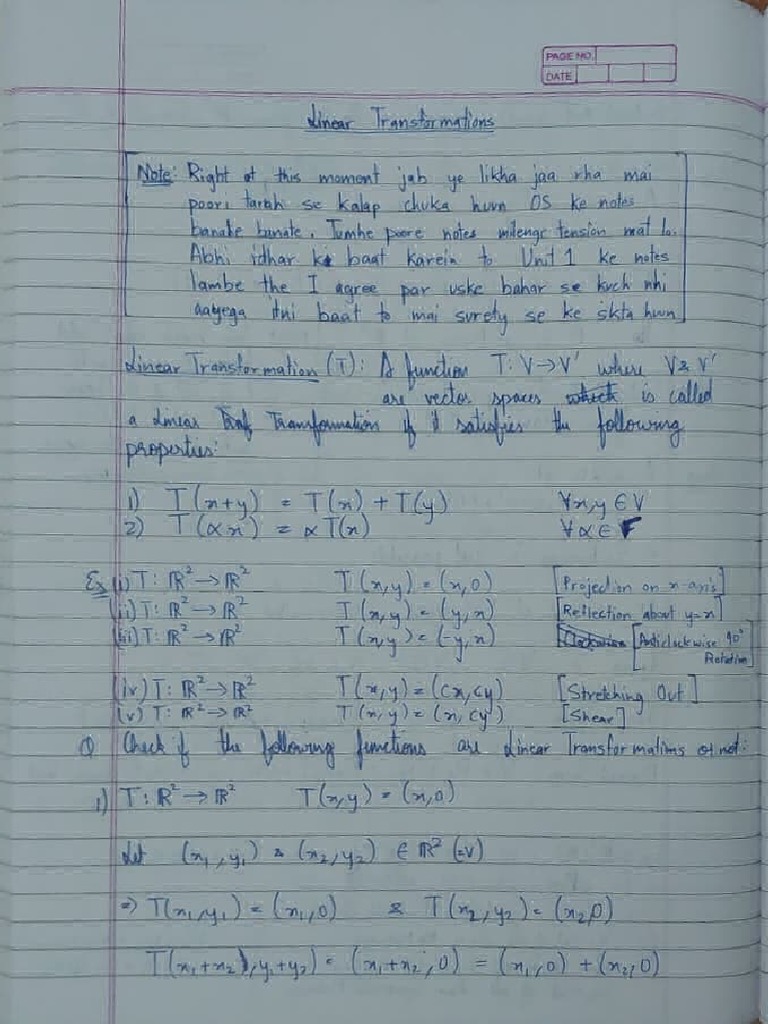 PAGE NO.
DATE
Linear Transformations
Note: Right at this moment jab ye likha jaa rha mai
poori tarah se kalap chuka hum OS ke notes
banake banate. Tumhe poore notes milenge tension mat lo.
Abhi idhar ki baat karein to Unit 1 ke notes
lambe the I agree par uske bahar se kuch nhi
aayega itni baat to mai surety se ke skta hum
Linear Transformation (T): A function T: V→V' where V & V'
are vector spaces which is called
a Linear Transformation if it satisfies the following
properties:
1) T(x+y) = T(x) + T(y) ∀x,y ∈ V
2) T(αx) = αT(x) ∀α ∈ F
Ex (i) T: ℝ² → ℝ² T(x,y) = (x,0) [Projection on x-axis]
(ii) T: ℝ² → ℝ² T(x,y) = (y,x) [Reflection about y=x]
(iii) T: ℝ² → ℝ² T(x,y) = (-y,x) Clockwise [Anticlockwise 90°
Rotation]
(iv) T: ℝ² → ℝ² T(x,y) = (cx,cy) [Stretching Out]
(v) T: ℝ² → ℝ² T(x,y) = (x,cy) [Shear]
Q Check if the following functions are Linear Transformations or not:
1) T: ℝ² → ℝ² T(x,y) = (x,0)
Let (x₁,y₁) & (x₂,y₂) ∈ ℝ² (=V)
⇒ T(x₁,y₁) = (x₁,0) & T(x₂,y₂) = (x₂,0)
T(x₁+x₂,y₁+y₂) = (x₁+x₂,0) = (x₁,0) + (x₂,0)